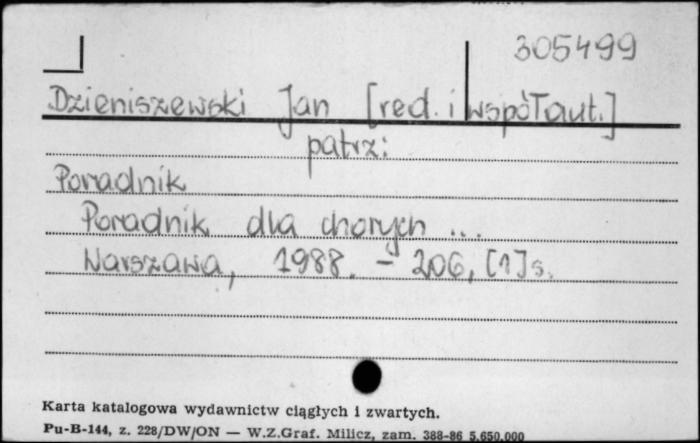 305499
Dzieniszewski Jan [red. i współaut.]
patrz:
Poradnik
Poradnik dla chorych ...
Warszawa, 1988. - 206, [1] s.
Karta katalogowa wydawnictw ciągłych i zwartych.
Pu-B-144, z. 228/DW/ON — W.Z.Graf. Milicz, zam. 388-86 5.650.000